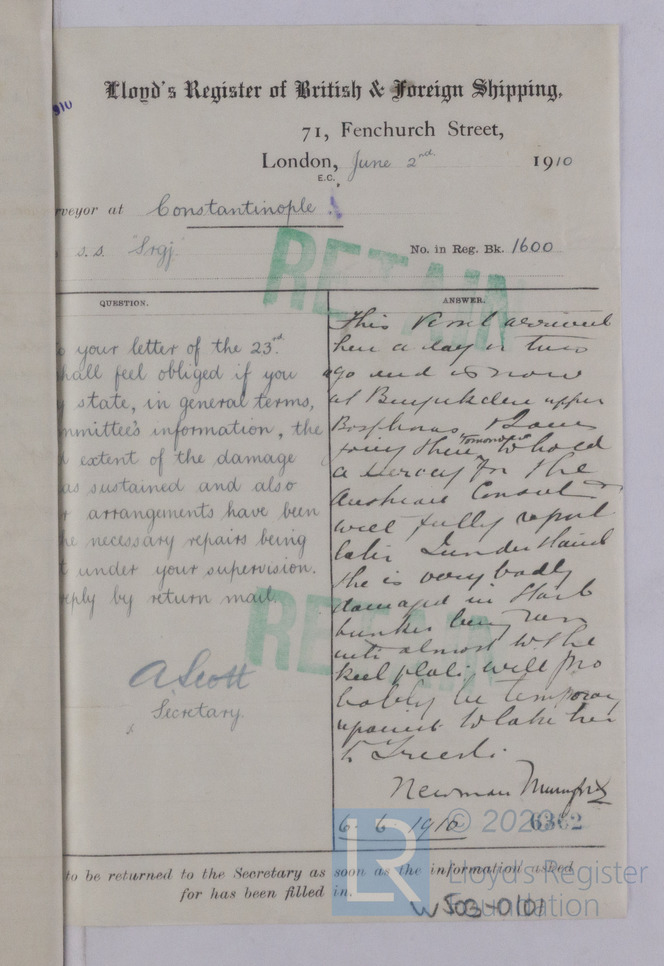 Lloyd's Register of British & Foreign Shipping,
71, Fenchurch Street,
London, June 2nd 1910
E.C.,
910
rveyor at Constantinople
s.s. "Srgj"
No. in Reg. Bk. 1600
RETAIN
QUESTION.
your letter of the 23rd.
hall feel obliged if you
state, in general terms,
mmittee's information, the
extent of the damage
as sustained and also
arrangements have been
he necessary repairs being
t under your supervision.
reply by return mail.
RETAIN
A Scott
Secretary.
ANSWER.
This Vessel arrived
here a day or two
ago and is now
at Buyukdere upper
Bosphorus & I am
going there tomorrow to hold
a survey for the
Austrian Consul
will fully report
later I understand
she is very badly
damaged in Starb
bunker being
into almost to the
keel plate, will pro
bably be temporary
to take her
to Trieste.
Newman
6.6.1910
6362
to be returned to the Secretary as soon as the information asked
for has been filled in.
W503-0101
LR
© 2020
Lloyd's Register
Foundation